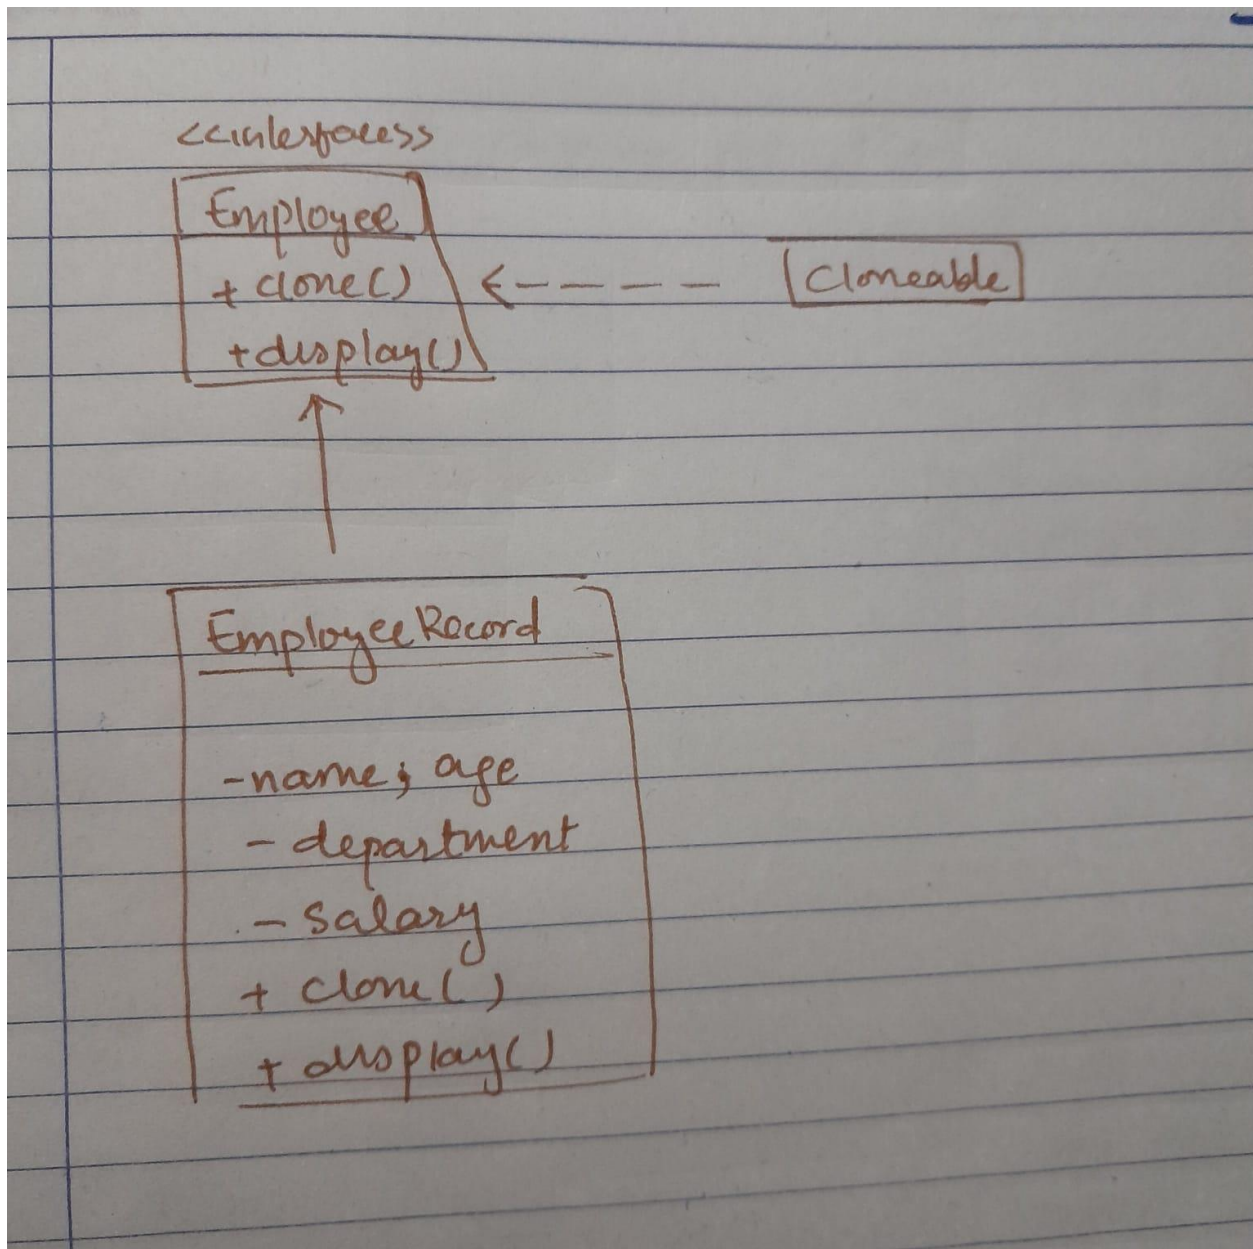 <<interface>>
Employee
+ clone()
+ display()
Cloneable
EmployeeRecord
- name; age
- department
- salary
+ clone()
+ display()